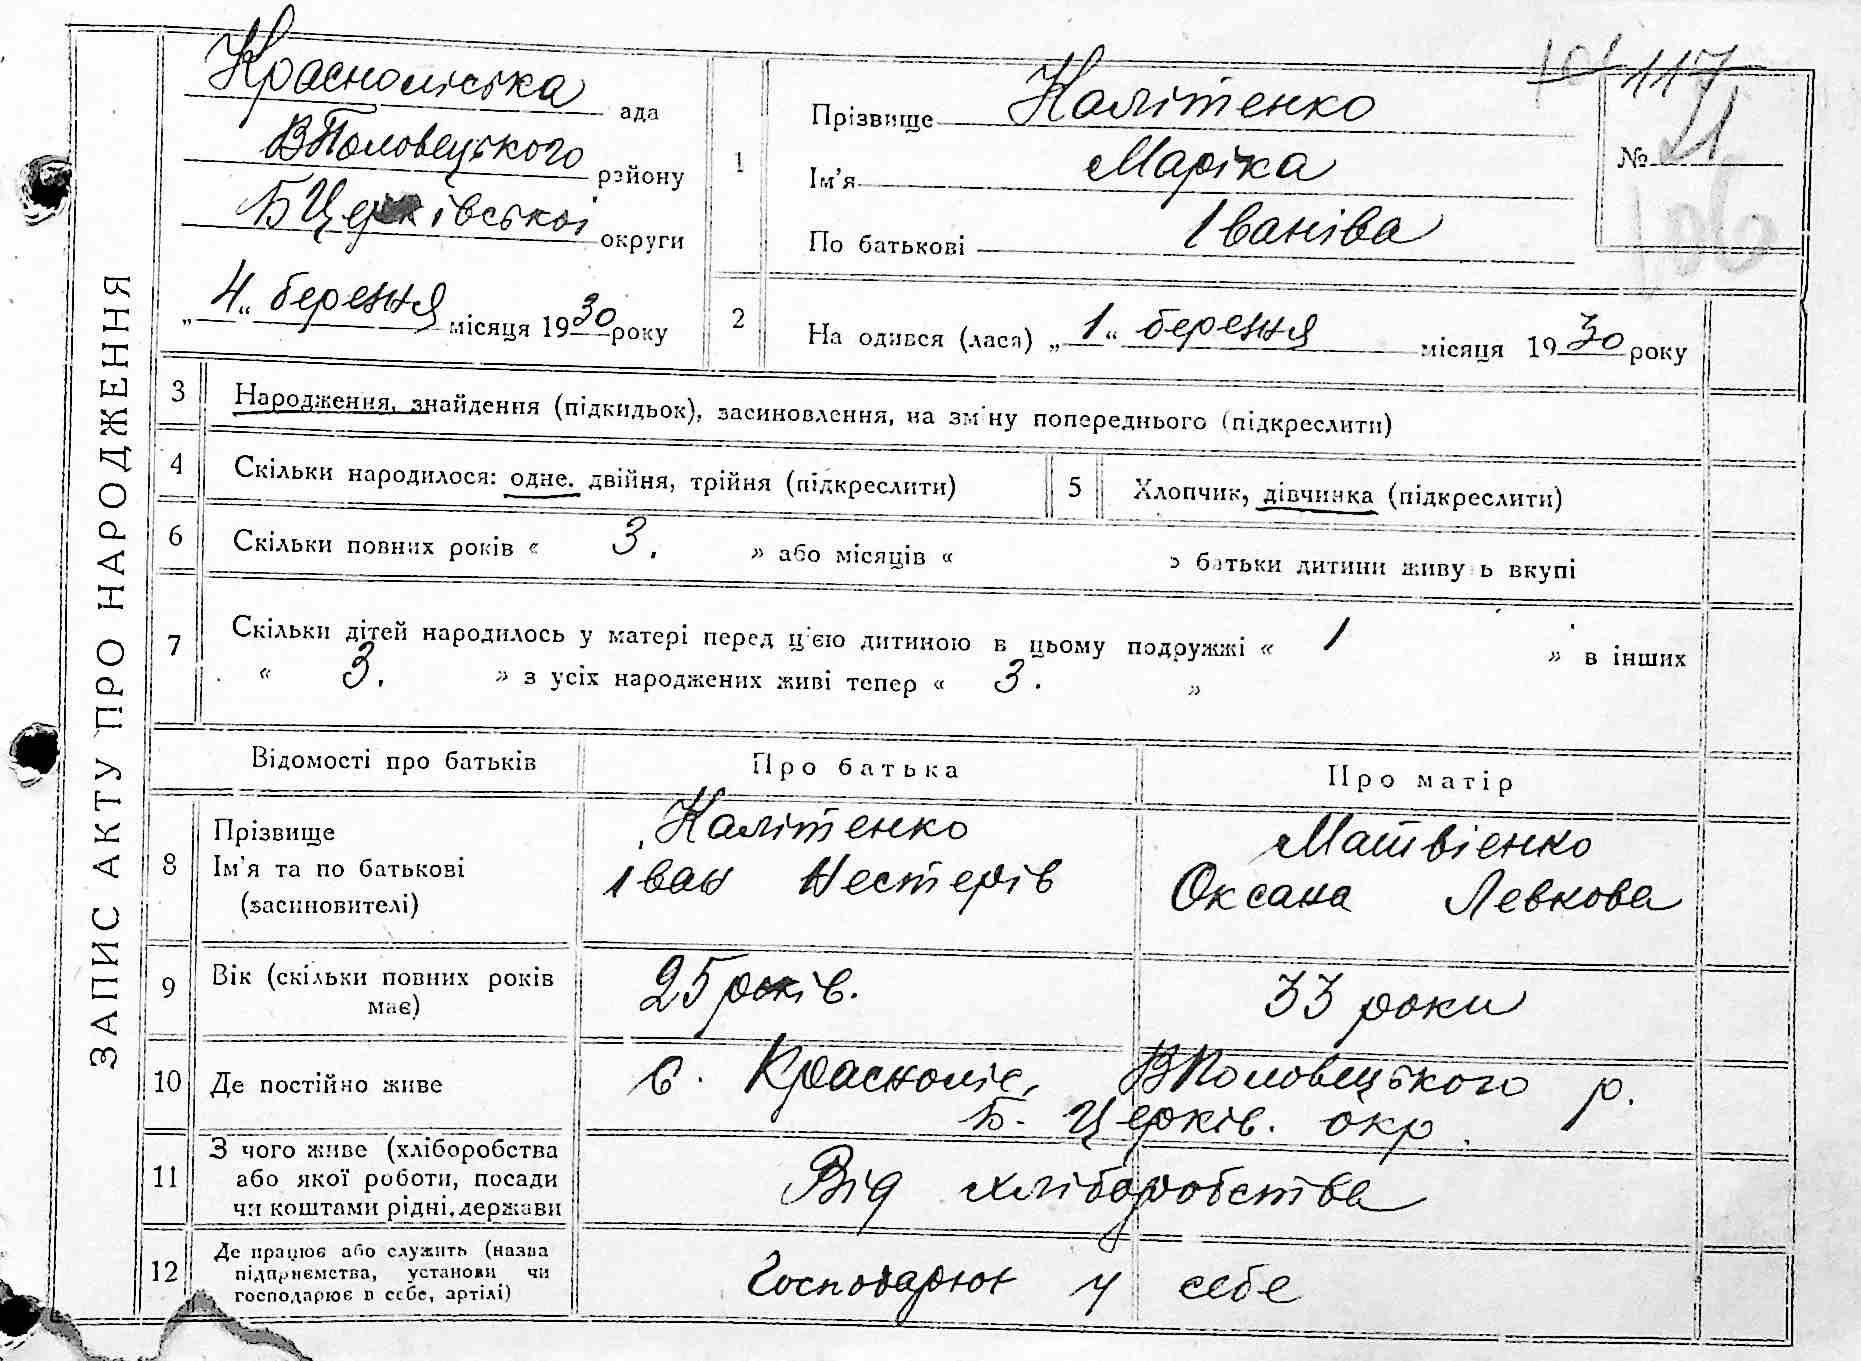 ЗАПИС АКТУ ПРО НАРОДЖЕННЯ
Красноліська ада
ВПоловецького району
БЦерківської округи
„ 4 “ березня місяця 1930 року
1
Прізвище Калітенко
Ім'я Маріка
По батькові Іваніва
117
№ 21
2
На одився (лася) „ 1 “ березня місяця 1930 року
3 Народження, знайдення (підкидьок), засиновлення, на зміну попереднього (підкреслити)
4 Скільки народилося: одне, двійня, трійня (підкреслити)
5 Хлопчик, дівчинка (підкреслити)
6 Скільки повних років « 3. » або місяців « » батьки дитини живу ь вкупі
7 Скільки дітей народилось у матері перед цією дитиною в цьому подружжі « 1 » в інших
« 3. » з усіх народжених живі тепер « 3. »
Відомості про батьків Про батька Про матір
8 Прізвище
Ім'я та по батькові
(засиновителі)
Калітенко
Іван Нестерів
Матвієнко
Оксана Левкова
9 Вік (скільки повних років
має)
25 років.
33 роки
10 Де постійно живе
с. Краснолі­с, ВПоловецького р.
Б. Церків. окр.
11 З чого живе (хліборобства
або якої роботи, посади
чи коштами рідні, держави
Від хліборобства
12 Де працює або служить (назва
підприємства, установи чи
господарює в себе, артілі)
Господарюют у себе